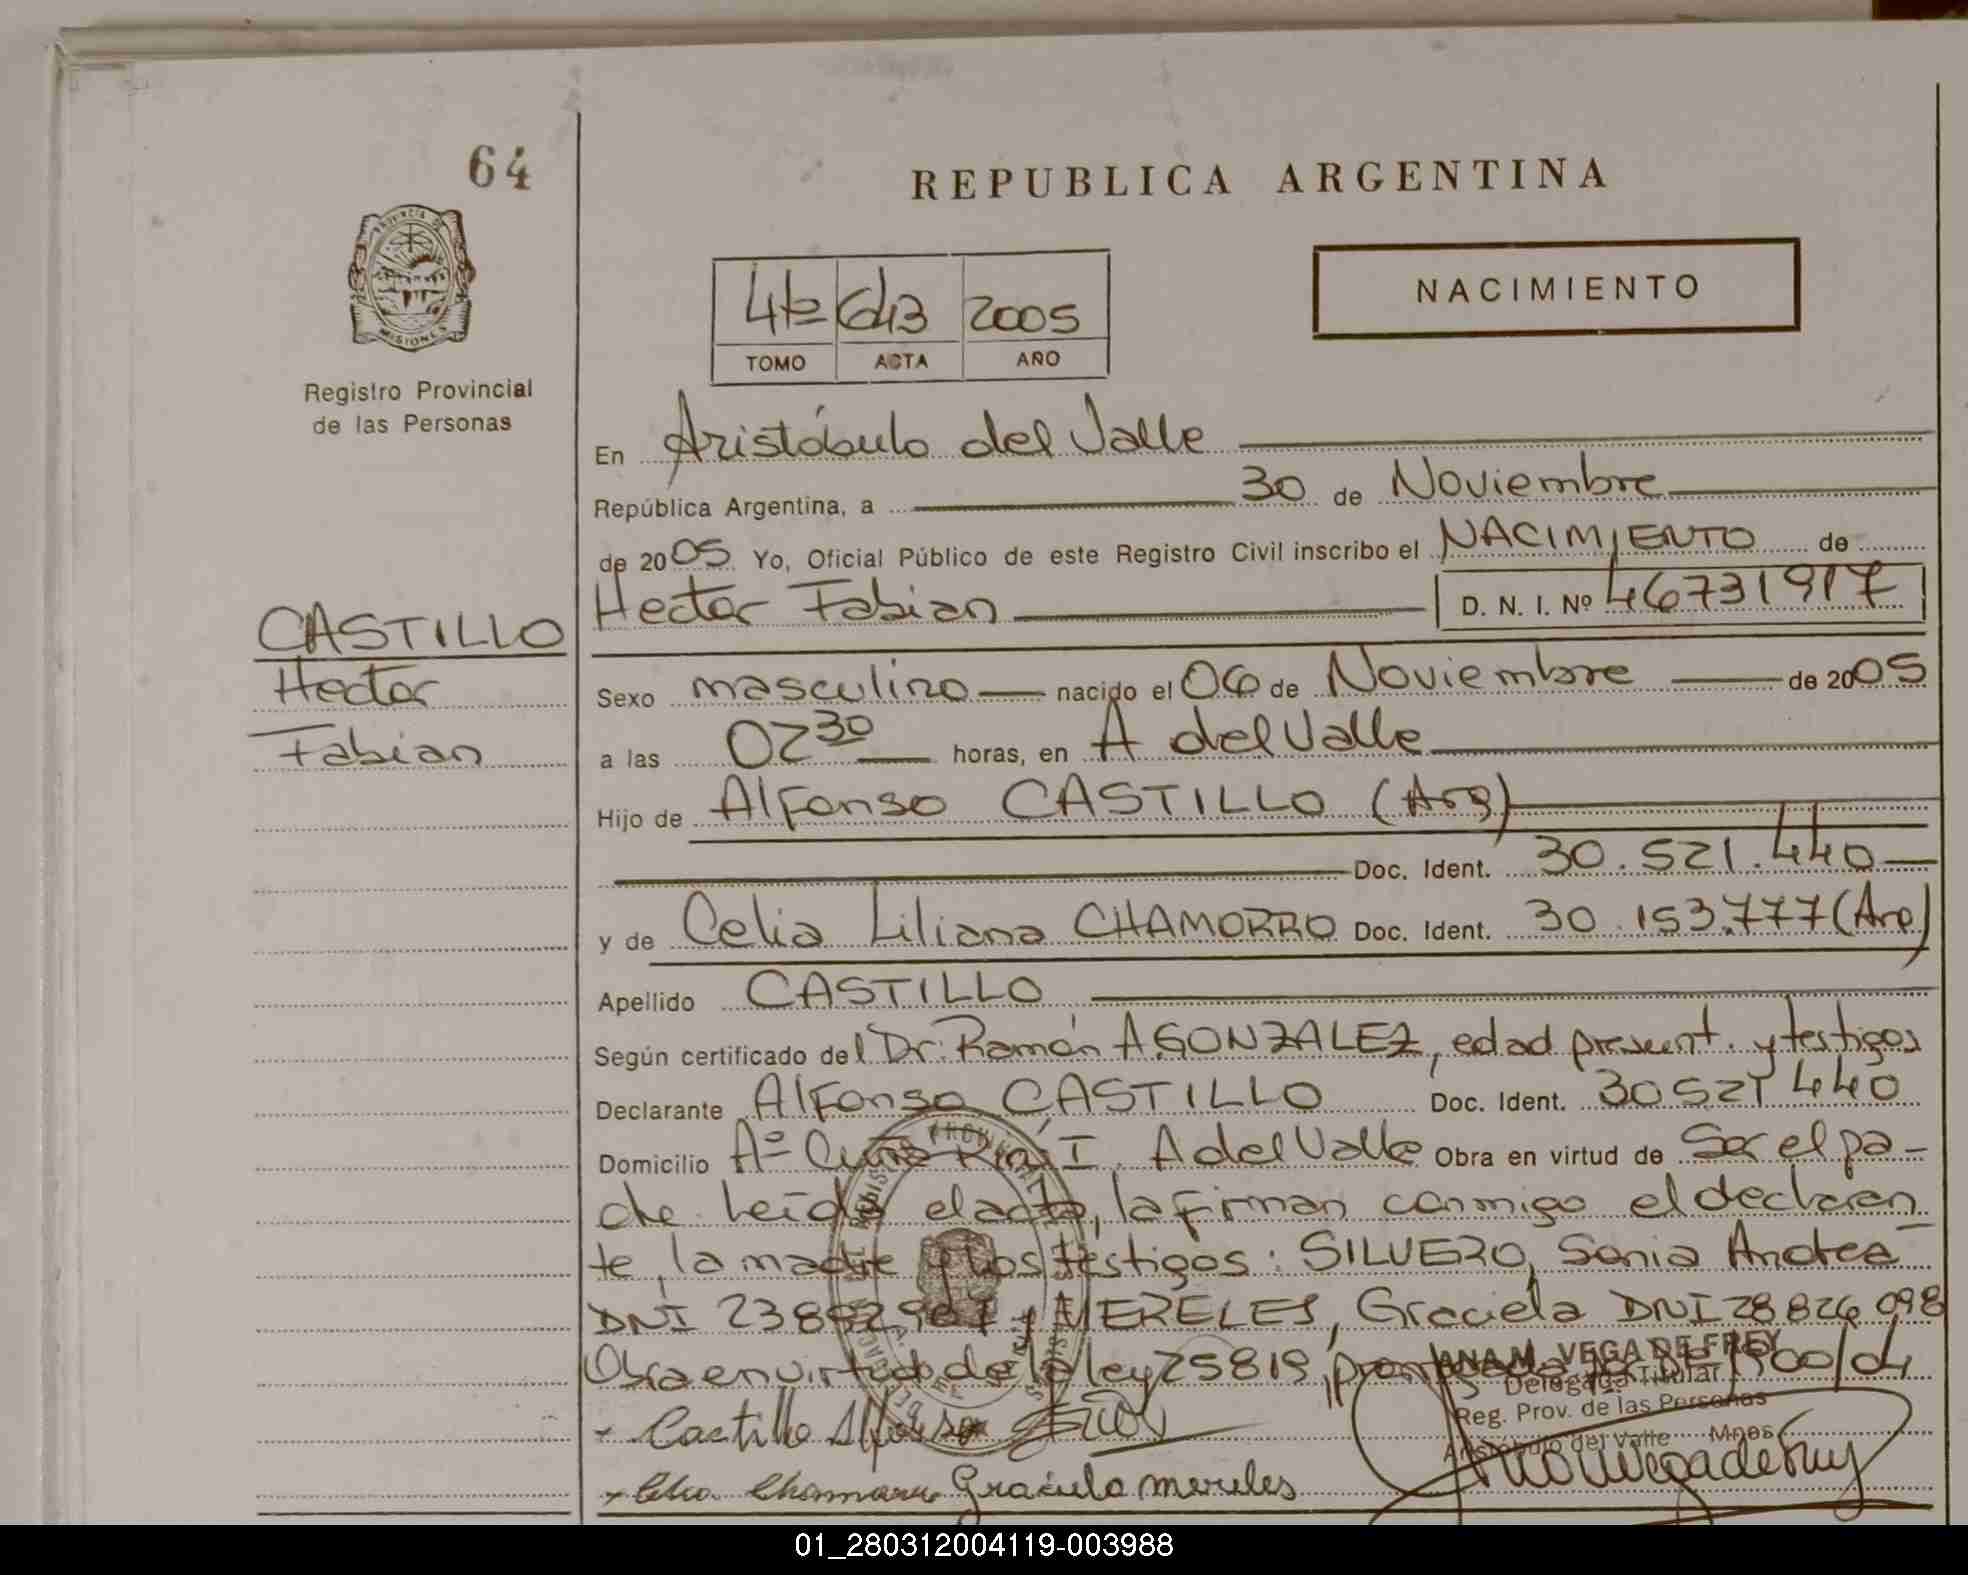 64
REPUBLICA ARGENTINA
PROVINCIA DE
MISIONES
Registro Provincial
de las Personas
NACIMIENTO
4to 643 2005
TOMO ACTA AÑO
En Aristóbulo del Valle
República Argentina, a 30 de Noviembre
de 2005 Yo, Oficial Público de este Registro Civil inscribo el NACIMIENTO de
Hector Fabian D. N. I. Nº 46731917
CASTILLO
Hector
Fabian
Sexo masculino nacido el 06 de Noviembre de 2005
a las 02 30 horas, en A del Valle
Hijo de Alfonso CASTILLO (Arg)
Doc. Ident. 30.521.440
y de Celia Liliana CHAMORRO Doc. Ident. 30.153.777 (Arg)
Apellido CASTILLO
Según certificado del Dr. Ramón A GONZALEZ, edad present. y testigos
Declarante Alfonso CASTILLO Doc. Ident. 30521440
Domicilio Aº I. A del Valle Obra en virtud de Ser el pa-
dre Leída el acta, la firman conmigo el declaran
te, la madre y los testigos: SILVERO, Sonia Andrea
DNI y MERELES, Graciela DNI 28826098
Obra en virtud de la ley 25819, 1900/04
ANA M. VEGA DE FREY
Delegada Titular
Reg. Prov. de las Personas
Aristóbulo del Valle Mnes
Castillo Alfonso
Celia Chamorro Graciela mereles
01_280312004119-003988